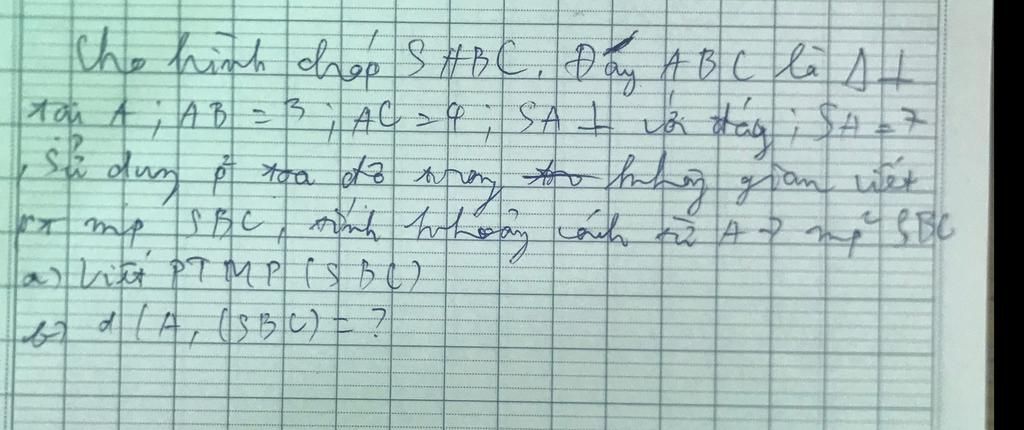 Cho hình chóp SABC. Đáy ABC là Δ ⊥
tại A; AB = 3; AC = 4; SA ⊥ với đáy; SA = 7
, Sử dụng p² tọa độ trong không gian viết
PT mp SBC, tính khoảng cách từ A → mp² SBC
a) Viết PTMP (SBC)
b) d(A, (SBC) = ?